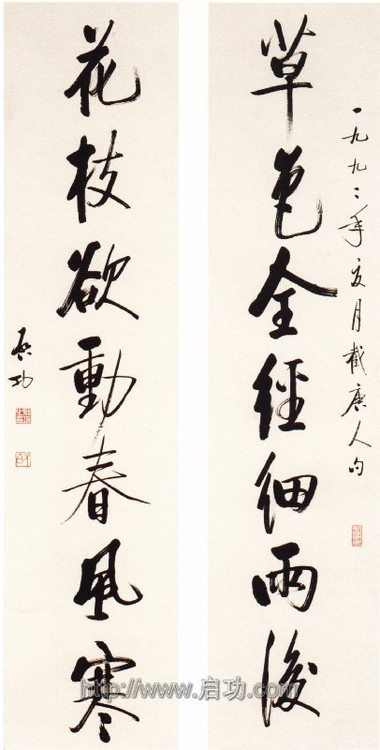 一九九二年夏月截唐人句
草色全經細雨後
花枝欲動春風寒
启功
http://www.启功.com